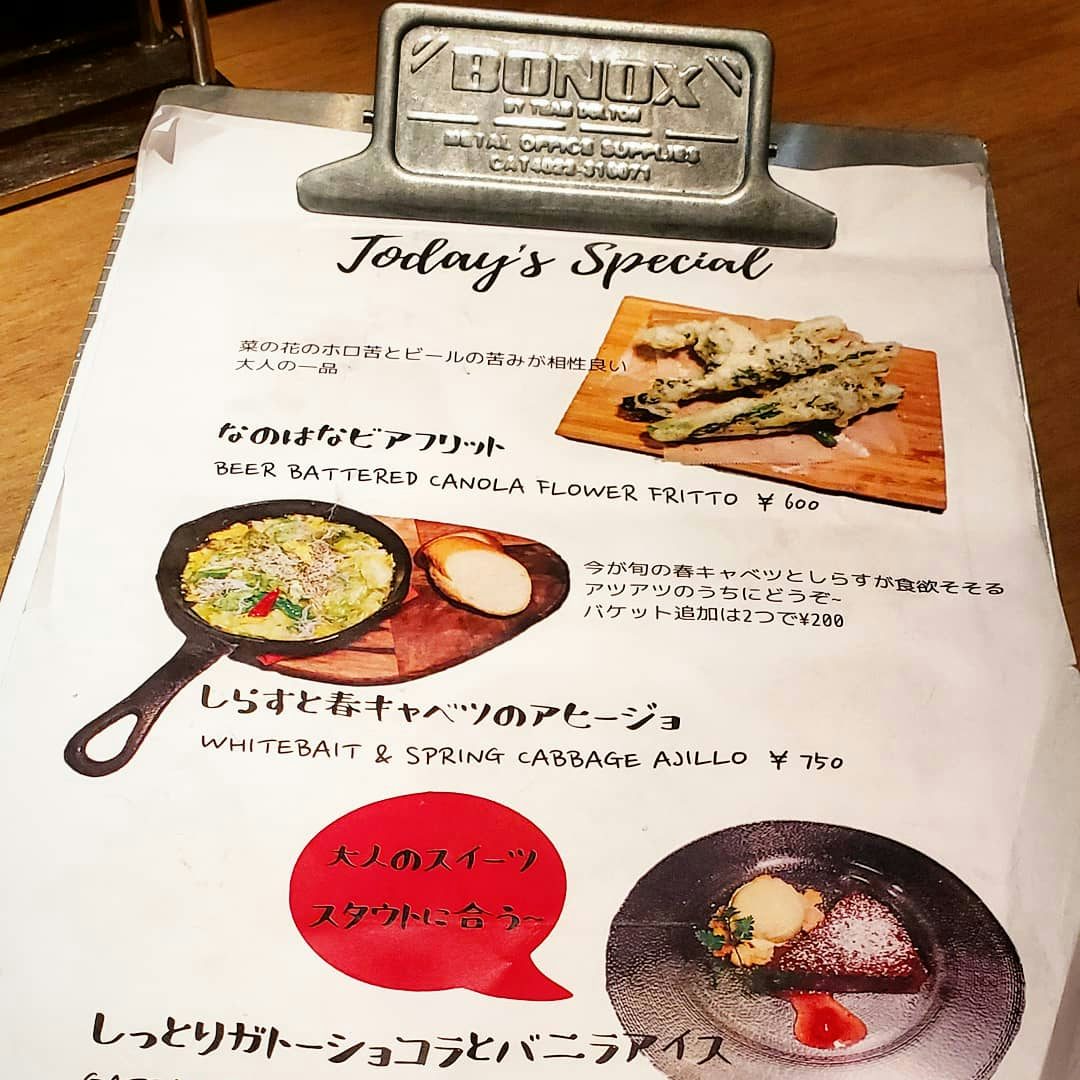 BONOX
BY TEAM DULTON
METAL OFFICE SUPPLIES
CAT4022-310071
Today's Special
菜の花のホロ苦とビールの苦みが相性良い
大人の一品
なのはなビアフリット
BEER BATTERED CANOLA FLOWER FRITTO ¥ 600
今が旬の春キャベツとしらすが食欲そそる
アツアツのうちにどうぞ~
バケット追加は2つで¥200
しらすと春キャベツのアヒージョ
WHITEBAIT & SPRING CABBAGE AJILLO ¥ 750
大人のスイーツ
スタウトに合う~
しっとりガトーショコラとバニラアイス